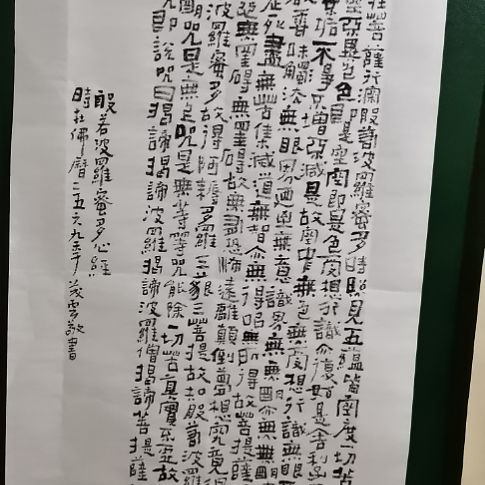 菩薩行深般若波羅蜜多時照見五蘊皆空度一切苦
空亦異色色即是空空即是色受想行識亦復如是舍利子
垢不淨不增不減是故空中無色無受想行識無眼
香味觸法無眼界乃至無意識界無無明亦無無明
老死盡無苦集滅道無智亦無得以無所得故菩提薩
無罣礙無罣礙故無有恐怖遠離顛倒夢想究竟
波羅蜜多故得阿耨多羅三藐三菩提故知般若波羅
咒是無上咒是無等等咒能除一切苦真實不虛故
即說咒曰揭諦揭諦波羅揭諦波羅僧揭諦菩提薩
般若波羅蜜多心經
時在佛曆二五六九年茂雲敬書